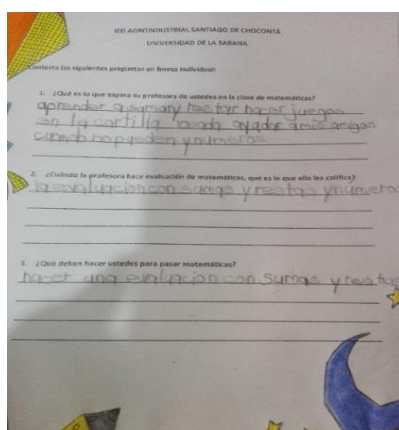 IED AGROINDUSTRIAL SANTIAGO DE CHOCONTÁ
UNIVERSIDAD DE LA SABANA
Contesta las siguientes preguntas en forma individual:
1. ¿Qué es lo que espera su profesora de ustedes en la clase de matemáticas?
aprender a sumar y restar hacer juegos
en la cartilla ayudar a mis amigos
cuando no pueden y numeros
2. ¿Cuándo la profesora hace evaluación de matemáticas, qué es lo que ella les califica?
la evaluacion con sumas y restas y número
3. ¿Que deben hacer ustedes para pasar matemáticas?
hacer una evaluacion con sumas y restas